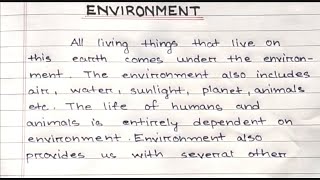 ENVIRONMENT
All living things that live on
this earth comes under the environ-
ment. The environment also includes
air, water, sunlight, planet, animals
etc. The life of humans and
animals is entirely dependent on
environment. Environment also
provides us with several other